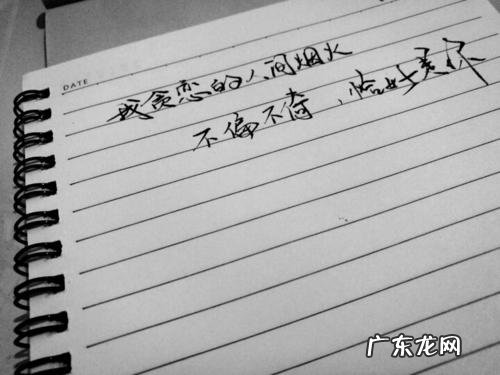 DATE
我贪恋的人间烟火
不偏不倚、恰好是你
广东龙网